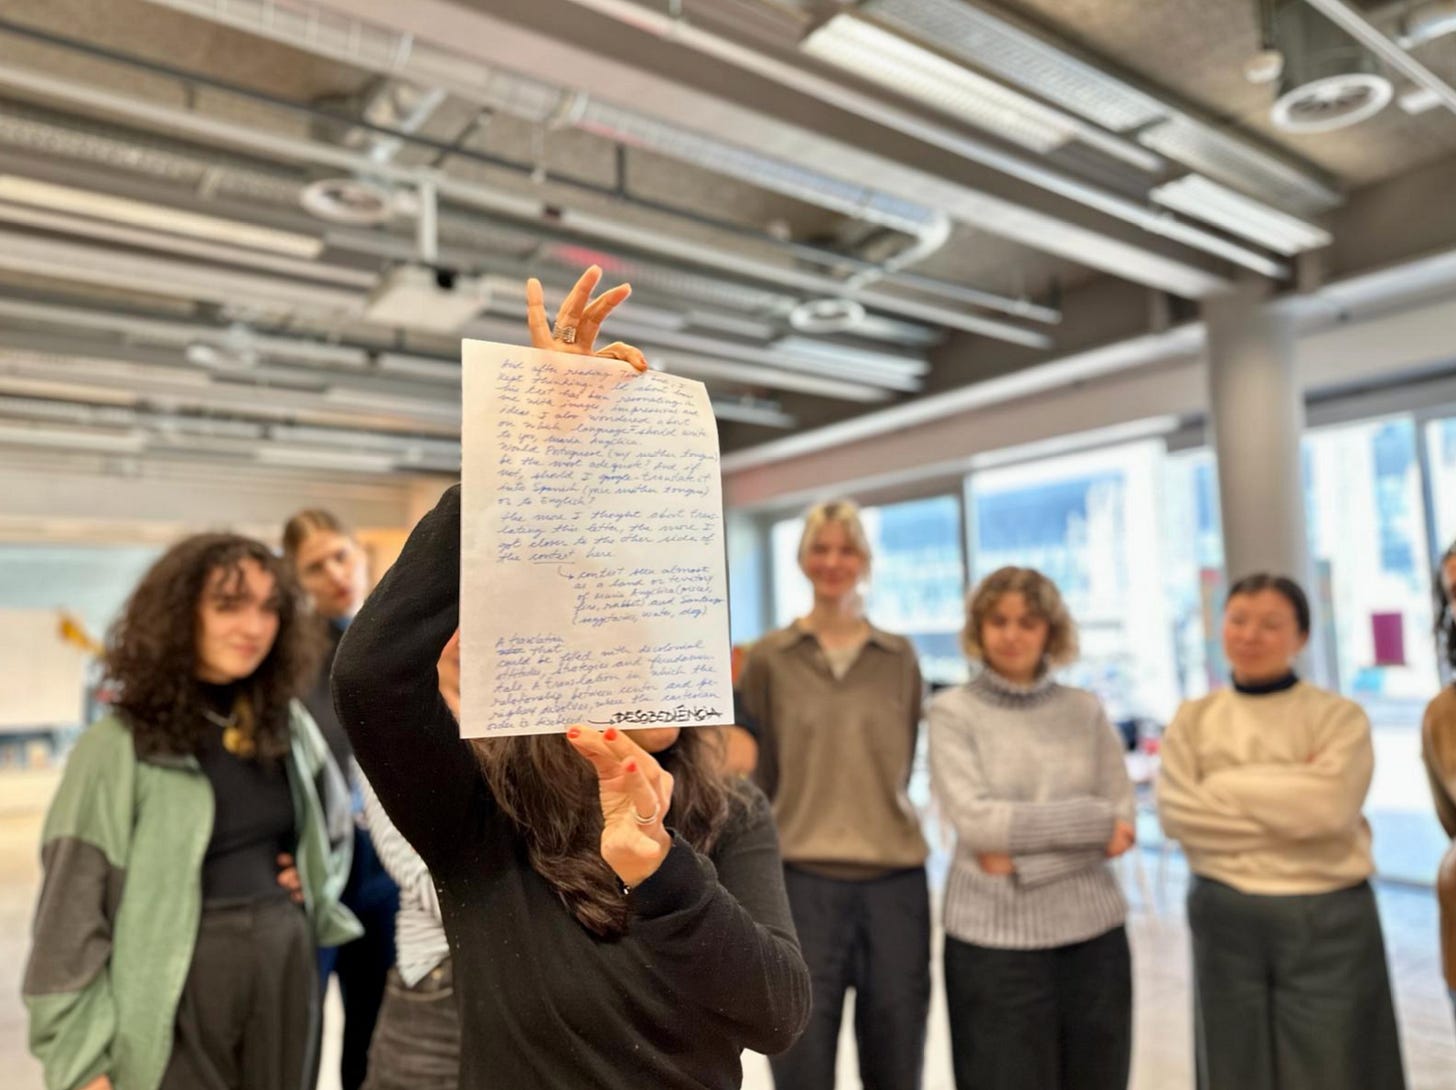 And after reading Text one, I
kept thinking a lot about how
the text has been resonating in
me with images, impressions and
ideas. I also wondered about
on which language should write
to you, María Angélica.
World Portuguese (my mother tongue)
be the most adequate? And if
not, should I google-translate it
into Spanish (your mother tongue)
or to English?
The more I thought about trans-
lating this letter, the more I
got closer to the other side of
the context here.
context seen almost
as a land or territory
of María Angélica (
fire, rabbit) and Santiago
(, water, dog)
A translation
that
could be filled with decolonial
attitudes, strategies and fundamen-
tals. A translation in which the
relationship between center and pe-
riphery dissolves, where the cartesian
order is disobeyed. DESOBEDIÊNCIA